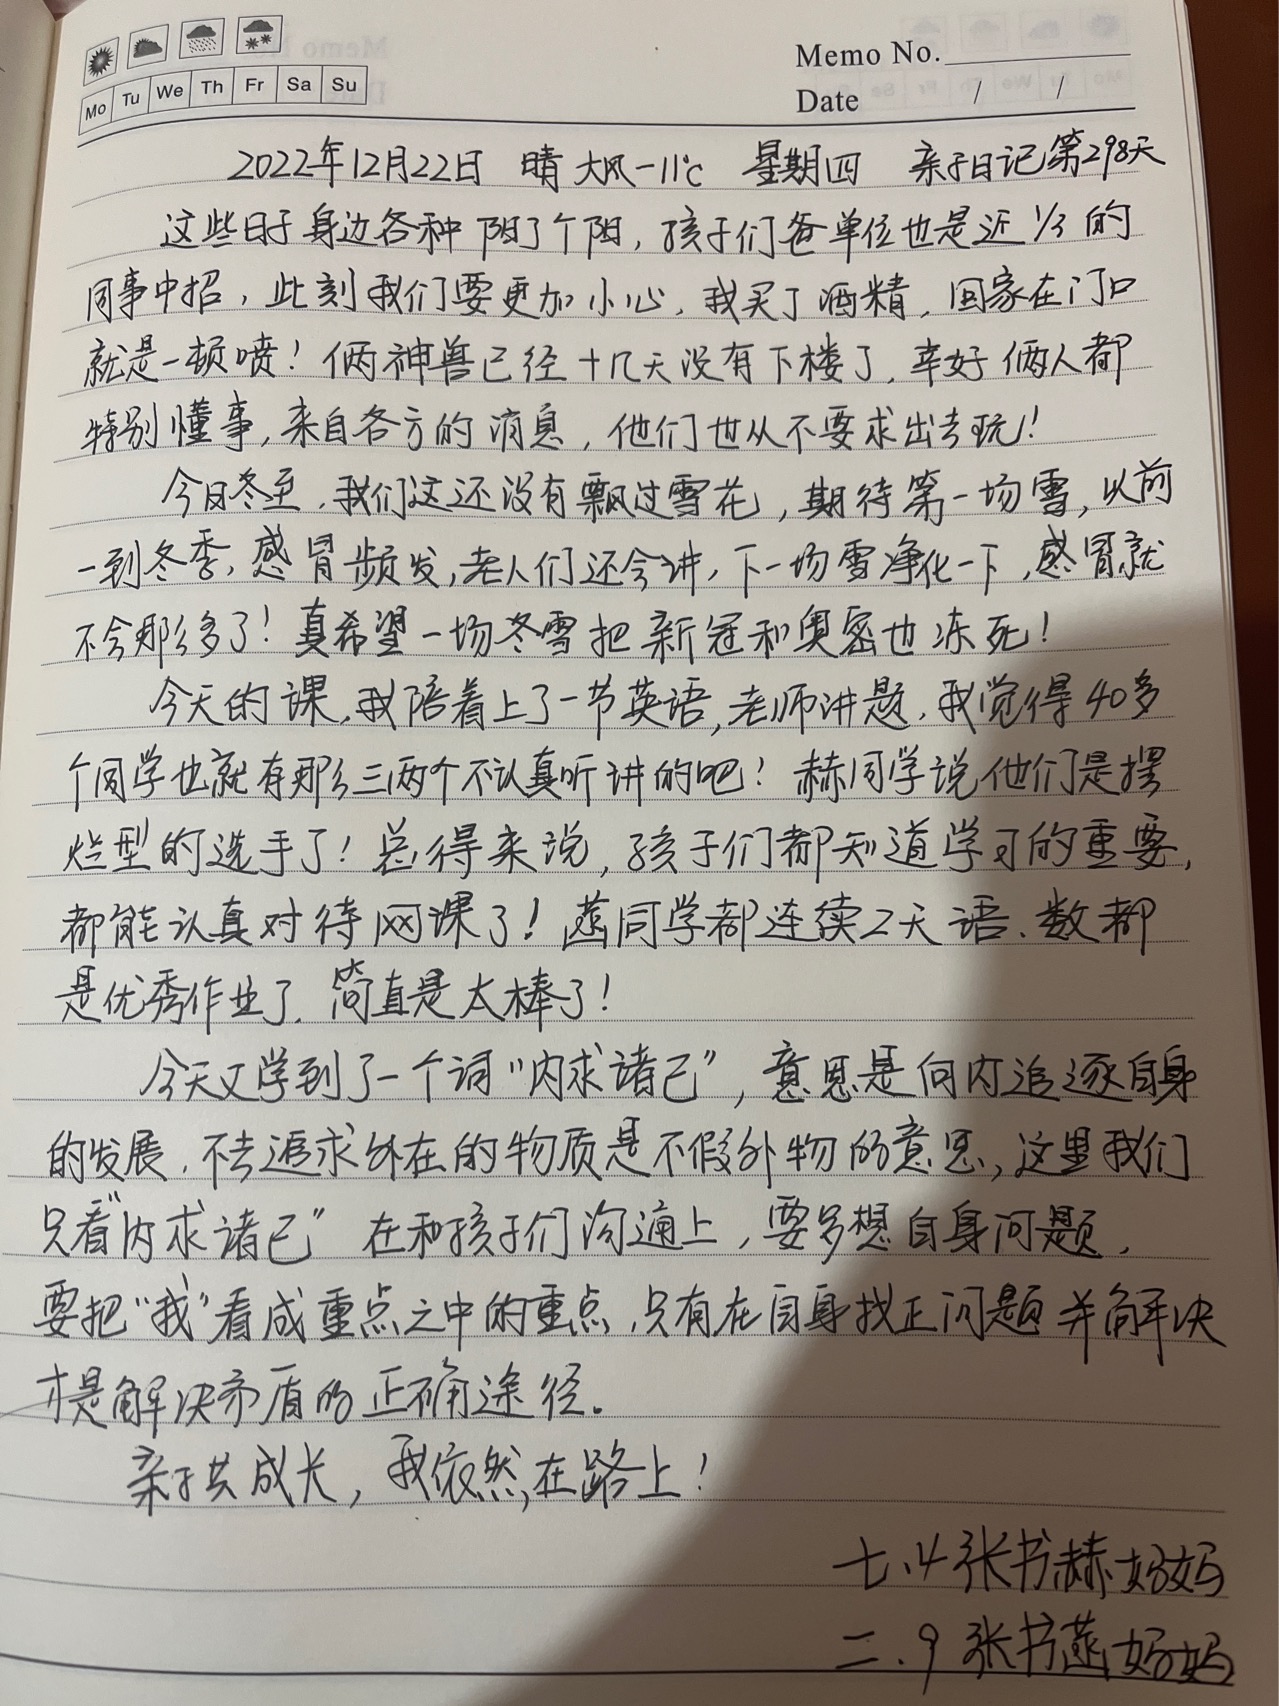 Mo Tu We Th Fr Sa Su
Memo No.
Date / /
2022年12月22日 晴 大风-11℃ 星期四 亲子日记第298天
这些日子身边各种阳了个阳，孩子们爸单位也是近1/3的
同事中招，此刻我们要更加小心，我买了酒精，回家在门口
就是一顿喷！俩神兽已经十几天没有下楼了，幸好俩人都
特别懂事，来自各方的消息，他们也从不要求出去玩！
今日冬至，我们这还没有飘过雪花，期待第一场雪，以前
一到冬季，感冒频发，老人们还会讲，下一场雪净化一下，感冒就
不会那么多了！真希望一场冬雪把新冠和奥密也冻死！
今天的课，我陪着上了一节英语，老师讲题，我觉得40多
个同学也就有那么三两个不认真听讲的吧！赫同学说他们是摆
烂型的选手了！总得来说，孩子们都知道学习的重要，
都能认真对待网课了！菡同学都连续2天语、数都
是优秀作业了，简直是太棒了！
今天又学到了一个词“内求诸己”，意思是向内追逐自身
的发展，不去追求外在的物质是不假外物的意思，这里我们
只看“内求诸己”在和孩子们沟通上，要多想自身问题，
要把“我”看成重点之中的重点，只有在自身找正问题并解决
才是解决矛盾的正确途径。
亲子共成长，我依然在路上！
七.4张书赫妈妈
二.9张书菡妈妈